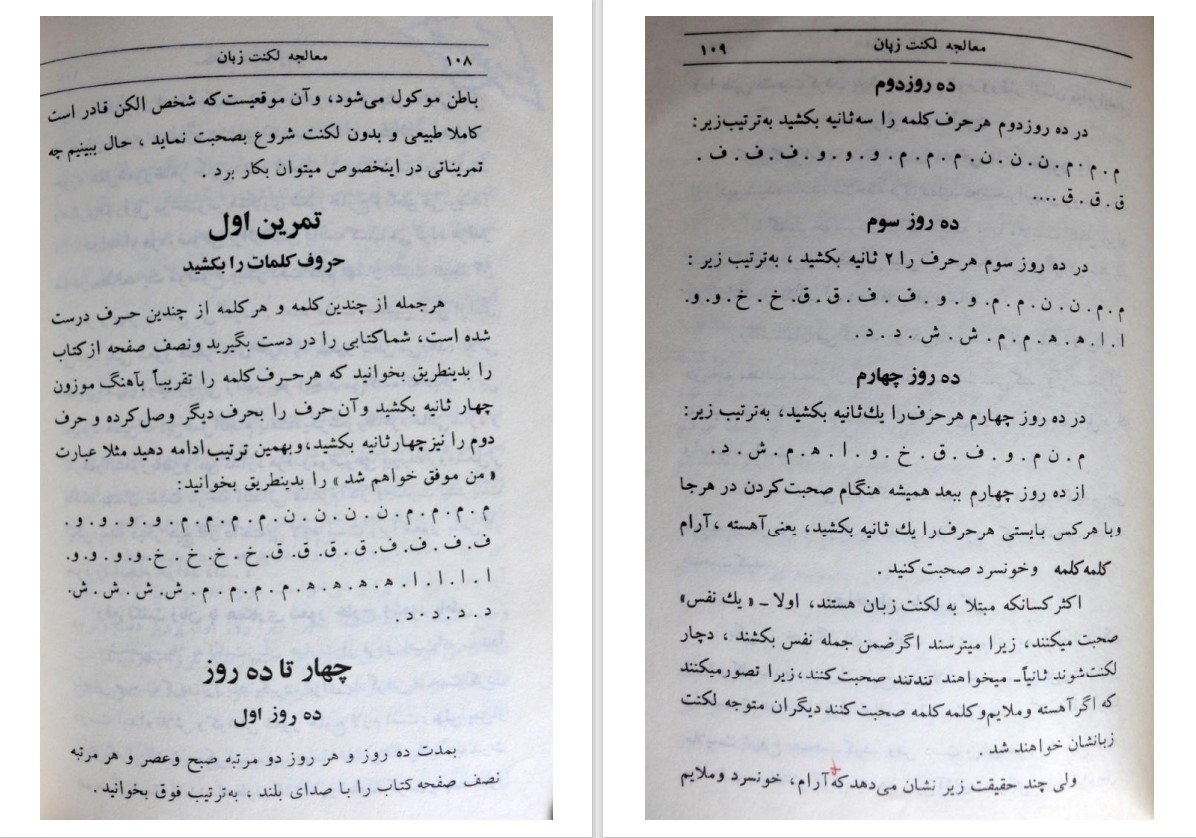 ۱۰۸ معالجه لکنت زبان
باطن موکول می‌شود، وآن موقعیست که شخص الکن قادر است
کاملا طبیعی و بدون لکنت شروع بصحبت نماید ، حال ببینیم چه
تمریناتی در اینخصوص میتوان بکار برد .
تمرین اول
حروف کلمات را بکشید
هرجمله از چندین کلمه و هرکلمه از چندین حرف درست
شده است، شماکتابی را در دست بگیرید ونصف صفحه ازکتاب
را بدینطریق بخوانید که هرحرف کلمه را تقریباً بآهنگ موزون
چهار ثانیه بکشید وآن حرف را بحرف دیگر وصل کرده و حرف
دوم را نیز چهارثانیه بکشید،وبهمین ترتیب ادامه دهید مثلا عبارت
«من موفق خواهم شد» را بدینطریق بخوانید:
م . م . م . م . ن . ن . ن . ن . م . م . م . م . و . و . و . و .
ف . ف . ف . ف . ق . ق . ق . ق . خ . خ . خ . خ . و . و . و . و .
ا . ا . ا . ا . ه . ه . ه . ه . م . م . م . م . ش . ش . ش . ش .
د . د . د . د .
چهار تا ده روز
ده روز اول
بمدت ده روز و هر روز دو مرتبه صبح وعصر و هر مرتبه
نصف صفحه کتاب را با صدای بلند ، به‌ترتیب فوق بخوانید .
معالجه لکنت زبان ۱۰۹
ده روزدوم
در ده روزدوم هرحرف کلمه را سه ثانیه بکشید به‌ترتیب زیر :
م . م . م . ن . ن . ن . م . م . م . و . و . و . ف . ف . ف .
ق . ق . ق ....
ده روز سوم
در ده روز سوم هرحرف را ۲ ثانیه بکشید ، به‌ترتیب زیر :
م . م . ن . ن . م . م . و . و . ف . ف . ق . ق . خ . خ . و . و .
ا . ا . ه . ه . م . م . ش . ش . د . د .
ده روز چهارم
در ده روز چهارم هرحرف را یك ثانیه بکشید، به‌ترتیب زیر:
م . ن م . و . ف . ق . خ . و . ا . ه . م . ش . د .
از ده روز چهارم ببعد همیشه هنگام صحبت کردن در هرجا
وبا هرکس بایستی هرحرف را یك ثانیه بکشید، یعنی آهسته ، آرام
کلمه کلمه وخونسرد صحبت کنید .
اکثر کسانکه مبتلا به لکنت زبان هستند، اولا ـ «یك نفس»
صحبت میکنند، زیرا میترسند اگرضمن جمله نفس بکشند ، دچار
لکنت‌شوند ثانیاً ـ میخواهند تندتند صحبت کنند، زیرا تصورمیکنند
که اگرآهسته وملایم وکلمه کلمه صحبت کنند دیگران متوجه لکنت
زبانشان خواهند شد .
ولی چند حقیقت زیر نشان می‌دهد که آرام، خونسرد وملایم